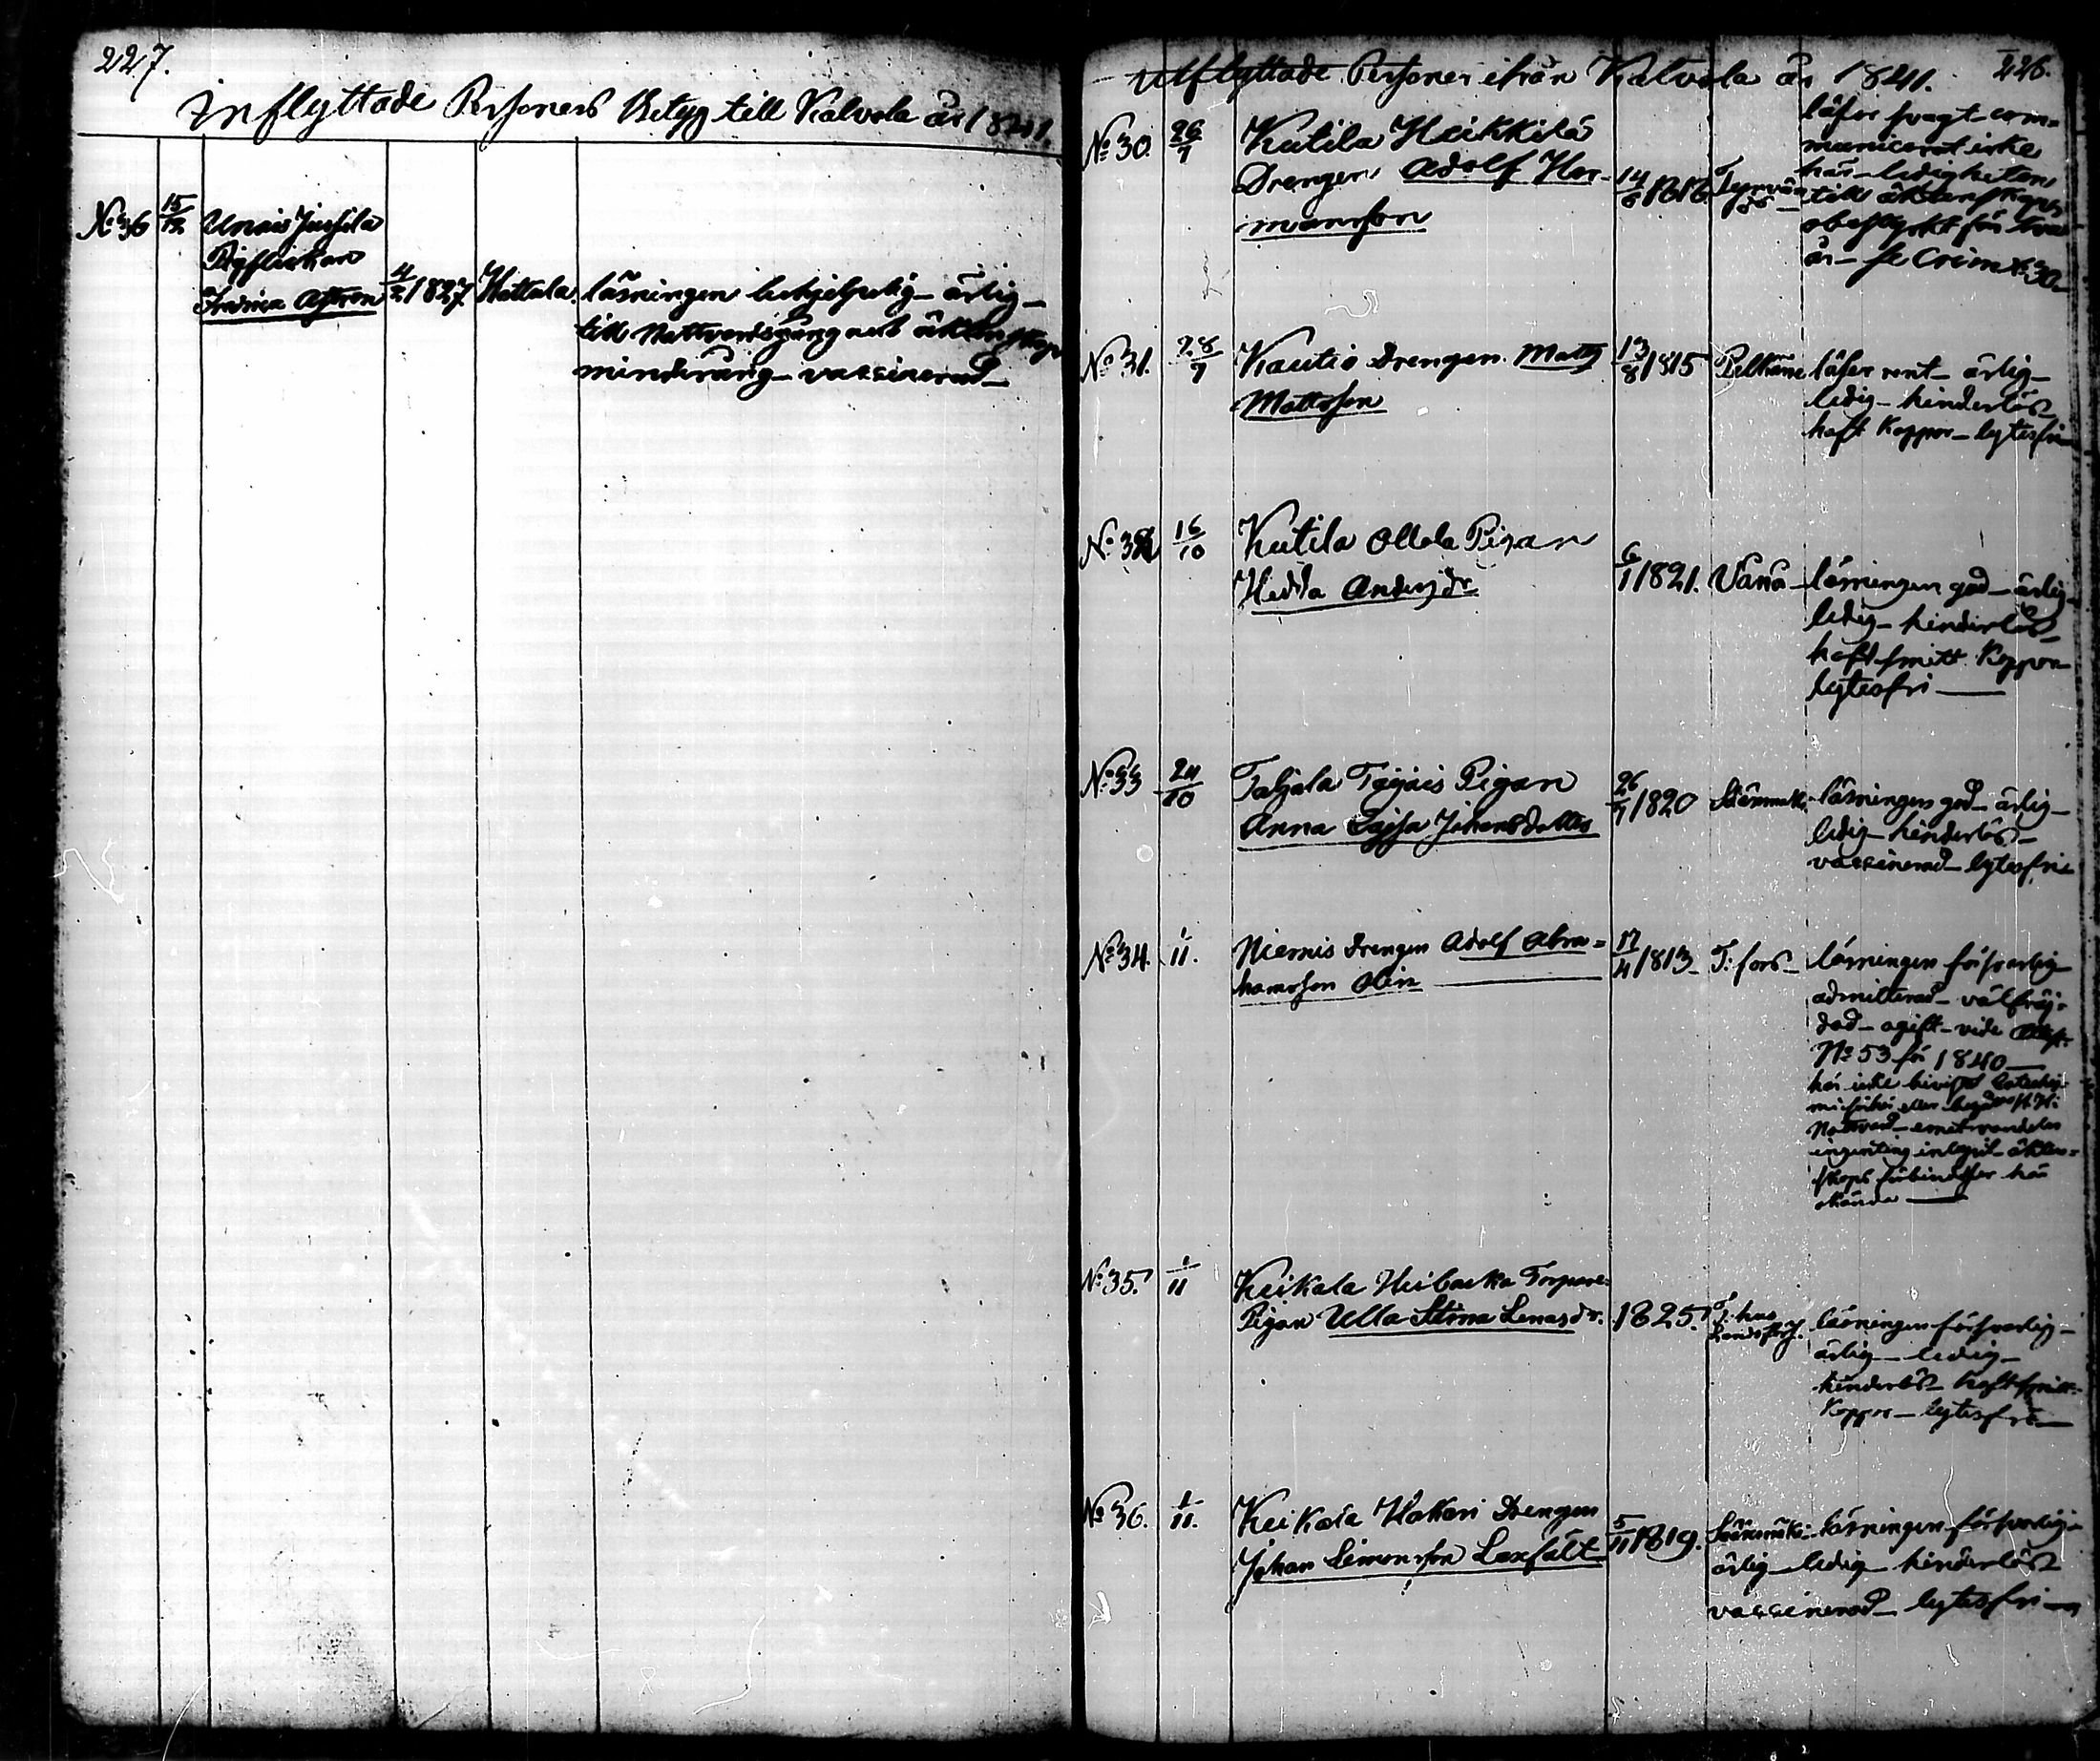 227.
Inflyttade Personers Betyg till Kalvola år 1841.
No 36 15/12 Unnais Jussila
Pigflickan
4/2 1827 Hattala. läsningen behjelpelig - ärlig -
till Nattvardsgång och äktenskap
minderårig - vaccinerad -
226.
Utflyttade Personer ifrån Kalvola år 1841.
No 30. 26/7 Kutila Heikkilä
Drengen Adolf Her-
mansson
14/6 1816 Tyrvän-
läser svagt com-
municerat icke
här - ledigheten
till äktenskap
obestyrkt för två
år - se Crim No 30 -
No 31. 28/7 Kautio Drengen Matts
Mattsson
13/8 1815 Pelkäne läser rent - ärlig -
ledig - hinderlös
haft Koppor - lytesfri
No 32 16/10 Kutila Ollola Pigan
Hedda Andersdr
6/1 1821. Vånå - läsningen god - ärlig -
ledig - hinderlös -
haft smitt Koppor
lytesfri -
No 33 24/10 Taljala Töyäis Pigan
Anna Cajsa Johansdotter
26/7 1820 Säxmäki - läsningen god - ärlig -
ledig - hinderlös -
vaccinerad - lytesfri
No 34. 1/11. Niemis Drengen Adolf Abra=
hamsson Olin
17/4 1813 T:fors - läsningen försvarlig
admitterad - välfräj-
dad - ogift - vide Attest
No 53 för 1840 -
har icke bevistat Catechis-
Nattvard - emot vandelen
ingenting - äkten=
skaps förbindelser här
okända -
No 35. 1/11 Keikala Torpare-
Pigan Ulla Stina Lenasdr.
1825. T. hus
Landsförs. läsningen försvarlig -
ärlig - ledig -
hinderlös - haft smitt-
Koppor - lytesfri -
No 36. 1/11. Keikala Hakari Drengen
Johan Simonsson Laxfält
5/11 1819. Säxmäki - läsningen försvarlig -
ärlig - ledig - hinderlös
vaccinerad - lytesfri -